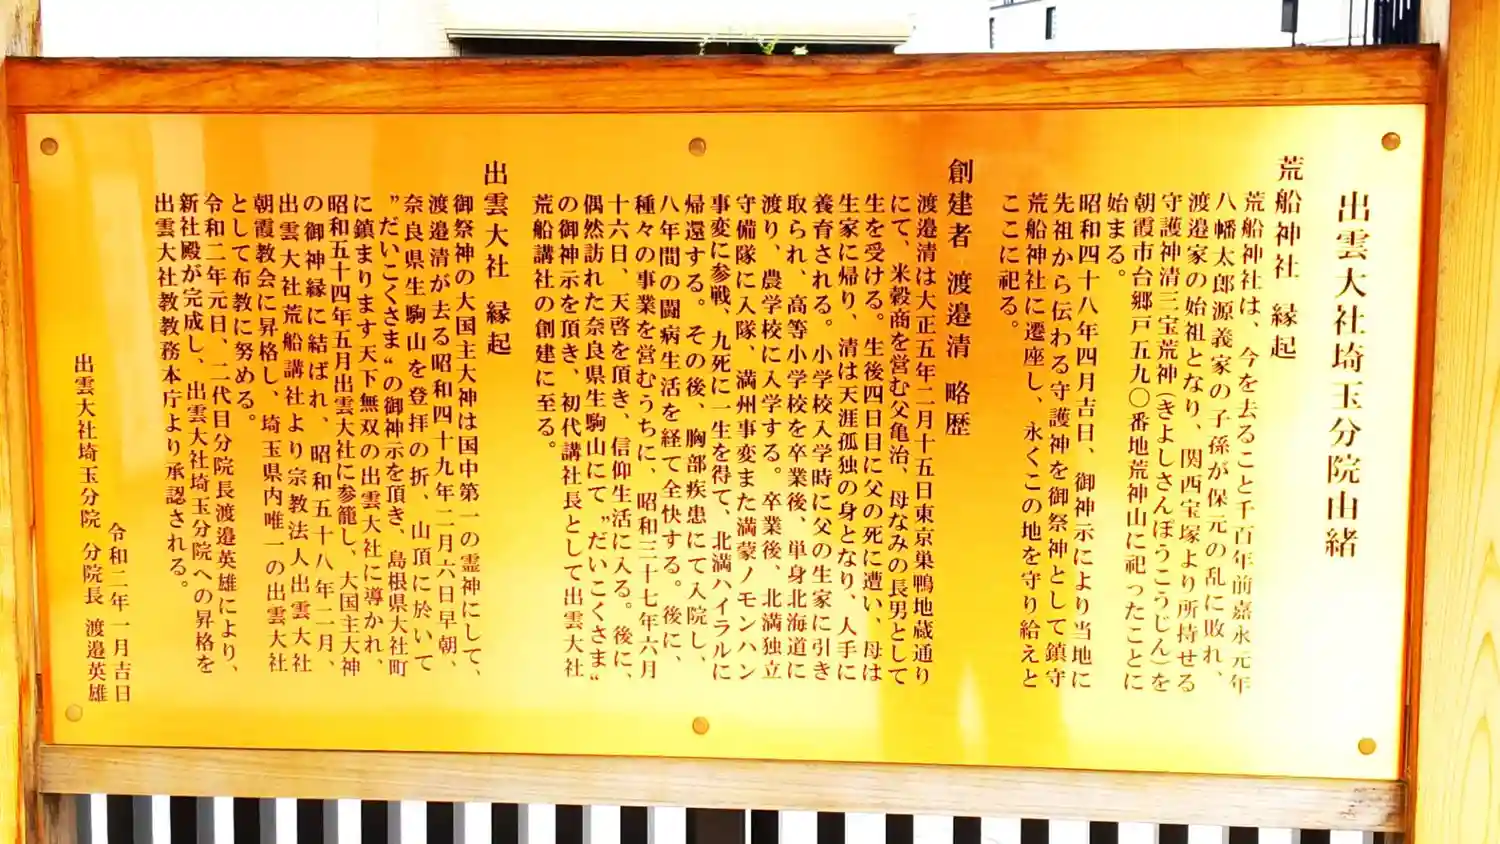 出雲大社埼玉分院由緒
荒船神社 縁起
荒船神社は、今を去ること千百年前嘉永元年
八幡太郎源義家の子孫が保元の乱に敗れ、
渡邉家の始祖となり、関西宝塚より所持せる
守護神清三宝荒神(きよしさんぽうこうじん)を
朝霞市台郷戸五九〇番地荒神山に祀ったことに
始まる。
昭和四十八年四月吉日、御神示により当地に
先祖から伝わる守護神を御祭神として鎮守
荒船神社に遷座し、永くこの地を守り給えと
ここに祀る。
創建者 渡邉清 略歴
渡邉清は大正五年二月十五日東京巣鴨地蔵通り
にて、米穀商を営む父亀治、母なみの長男として
生を受ける。生後四日目に父の死に遭い、母は
生家に帰り、清は天涯孤独の身となり、人手に
養育される。小学校入学時に父の生家に引き
取られ、高等小学校を卒業後、単身北海道に
渡り、農学校に入学する。卒業後、北満独立
守備隊に入隊、満州事変また満蒙ノモンハン
事変に参戦、九死に一生を得て、北満ハイラルに
帰還する。その後、胸部疾患にて入院し、
八年間の闘病生活を経て全快する。後に、
種々の事業を営むうちに、昭和三十七年六月
十六日、天啓を頂き、信仰生活に入る。後に、
偶然訪れた奈良県生駒山にて〝だいこくさま〟
の御神示を頂き、初代講社長として出雲大社
荒船講社の創建に至る。
出雲大社 縁起
御祭神の大国主大神は国中第一の霊神にして、
渡邉清が去る昭和四十九年二月六日早朝、
奈良県生駒山を登拝の折、山頂に於いて
〝だいこくさま〟の御神示を頂き、島根県大社町
に鎮まります天下無双の出雲大社に導かれ、
昭和五十四年五月出雲大社に参籠し、大国主大神
の御神縁に結ばれ、昭和五十八年一一月、
出雲大社荒船講社より宗教法人出雲大社
朝霞教会に昇格し、埼玉県内唯一の出雲大社
として布教に努める。
令和二年元日、二代目分院長渡邉英雄により、
新社殿が完成し、出雲大社埼玉分院への昇格を
出雲大社教教務本庁より承認される。
令和二年一月吉日
出雲大社埼玉分院 分院長 渡邉英雄